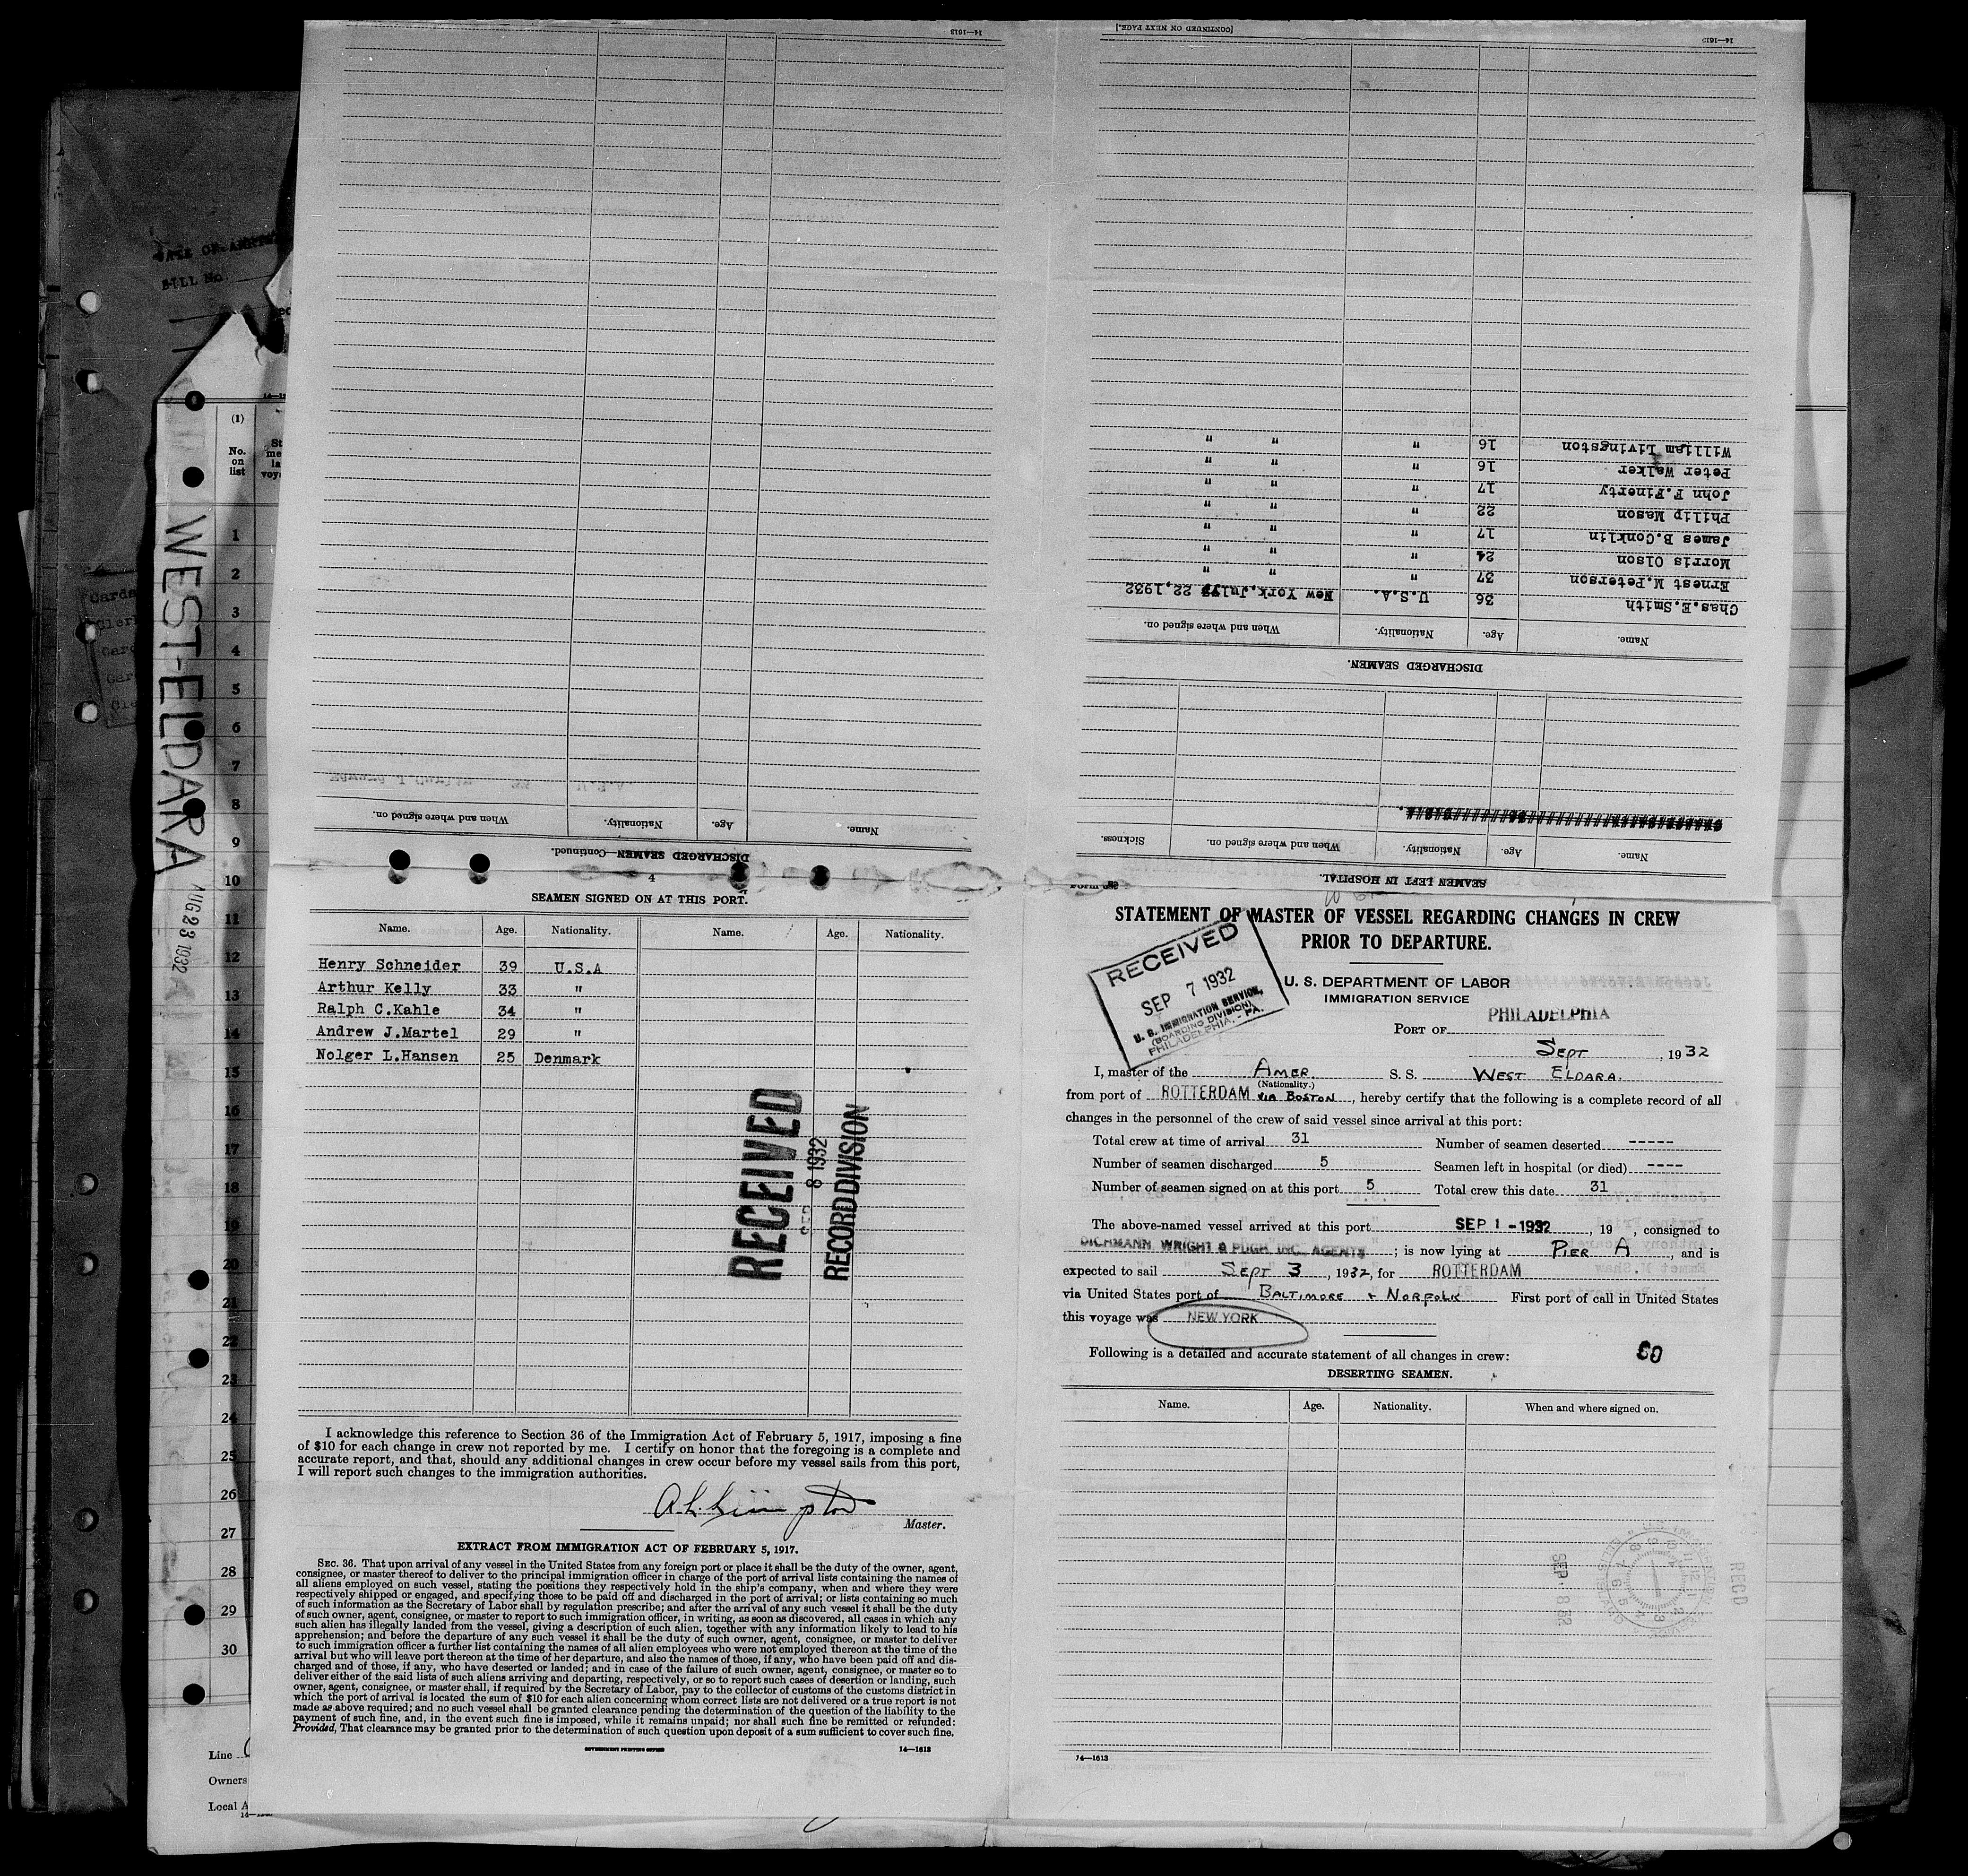 14—1613
[CONTINUED ON NEXT PAGE.]
14—1613
DATE OF
BILL No.
William Livingston 16 " " "
Peter Walker 16 " " "
John F.Finerty 17 " " "
Philip Mason 22 " " "
James B.Conklin 17 " " "
Morris Olson 24 " " "
Ernest M.Peterson 37 " " "
Chas.E.Smith 36 U.S.A. New York,July 22,1932
Name. Age. Nationality. When and where signed on.
DISCHARGED SEAMEN.
Name. Age. Nationality. When and where signed on. Sickness.
SEAMEN LEFT IN HOSPITAL.
Name. Age. Nationality. When and where signed on.
DISCHARGED SEAMEN—Continued.
4
SEAMEN SIGNED ON AT THIS PORT.
Name. Age. Nationality. Name. Age. Nationality.
Henry Schneider 39 U.S.A
Arthur Kelly 33 "
Ralph C.Kahle 34 "
Andrew J.Martel 29 "
Nolger L.Hansen 25 Denmark
RECEIVED
8 1932
RECORD DIVISION
I acknowledge this reference to Section 36 of the Immigration Act of February 5, 1917, imposing a fine
of $10 for each change in crew not reported by me. I certify on honor that the foregoing is a complete and
accurate report, and that, should any additional changes in crew occur before my vessel sails from this port,
I will report such changes to the immigration authorities.
Master.
EXTRACT FROM IMMIGRATION ACT OF FEBRUARY 5, 1917.
SEC. 36. That upon arrival of any vessel in the United States from any foreign port or place it shall be the duty of the owner, agent,
consignee, or master thereof to deliver to the principal immigration officer in charge of the port of arrival lists containing the names of
all aliens employed on such vessel, stating the positions they respectively hold in the ship's company, when and where they were
respectively shipped or engaged, and specifying those to be paid off and discharged in the port of arrival; or lists containing so much
of such information as the Secretary of Labor shall by regulation prescribe; and after the arrival of any such vessel it shall be the duty
of such owner, agent, consignee, or master to report to such immigration officer, in writing, as soon as discovered, all cases in which any
such alien has illegally landed from the vessel, giving a description of such alien, together with any information likely to lead to his
apprehension; and before the departure of any such vessel it shall be the duty of such owner, agent, consignee, or master to deliver
to such immigration officer a further list containing the names of all alien employees who were not employed thereon at the time of the
arrival but who will leave port thereon at the time of her departure, and also the names of those, if any, who have been paid off and dis-
charged and of those, if any, who have deserted or landed; and in case of the failure of such owner, agent, consignee, or master so to
deliver either of the said lists of such aliens arriving and departing, respectively, or so to report such cases of desertion or landing, such
owner, agent, consignee, or master shall, if required by the Secretary of Labor, pay to the collector of customs of the customs district in
which the port of arrival is located the sum of $10 for each alien concerning whom correct lists are not delivered or a true report is not
made as above required; and no such vessel shall be granted clearance pending the determination of the question of the liability to the
payment of such fine, and, in the event such fine is imposed, while it remains unpaid; nor shall such fine be remitted or refunded:
Provided, That clearance may be granted prior to the determination of such question upon deposit of a sum sufficient to cover such fine.
GOVERNMENT PRINTING OFFICE 14—1613
STATEMENT OF MASTER OF VESSEL REGARDING CHANGES IN CREW
PRIOR TO DEPARTURE.
RECEIVED
SEP 7 1932
U. S. IMMIGRATION SERVICE,
(BOARDING DIVISION)
PHILADELPHIA, - PA.
U. S. DEPARTMENT OF LABOR
IMMIGRATION SERVICE
PORT OF PHILADELPHIA
SEPT , 1932
I, master of the AMER. S. S. WEST ELDARA.
(Nationality.)
from port of ROTTERDAM VIA BOSTON, hereby certify that the following is a complete record of all
changes in the personnel of the crew of said vessel since arrival at this port:
Total crew at time of arrival 31 Number of seamen deserted -----
Number of seamen discharged 5 Seamen left in hospital (or died) ----
Number of seamen signed on at this port 5 Total crew this date 31
The above-named vessel arrived at this port SEP 1 - 1932 , 19 , consigned to
DICHMANN WRIGHT & PUGH INC. AGENTS ; is now lying at PIER A , and is
expected to sail SEPT 3 , 1932, for ROTTERDAM
via United States port of BALTIMORE + NORFOLK First port of call in United States
this voyage was NEW YORK
Following is a detailed and accurate statement of all changes in crew:
DESERTING SEAMEN.
Name. Age. Nationality. When and where signed on.
REC'D
SEP 8 32
14—1613
WEST-ELDARA
AUG 23 1932
(1)
No.
on
list
1
2
3
4
5
6
7
8
9
10
11
12
13
14
15
16
17
18
19
20
21
22
23
24
25
26
27
28
29
30
Line
Owners
Local A